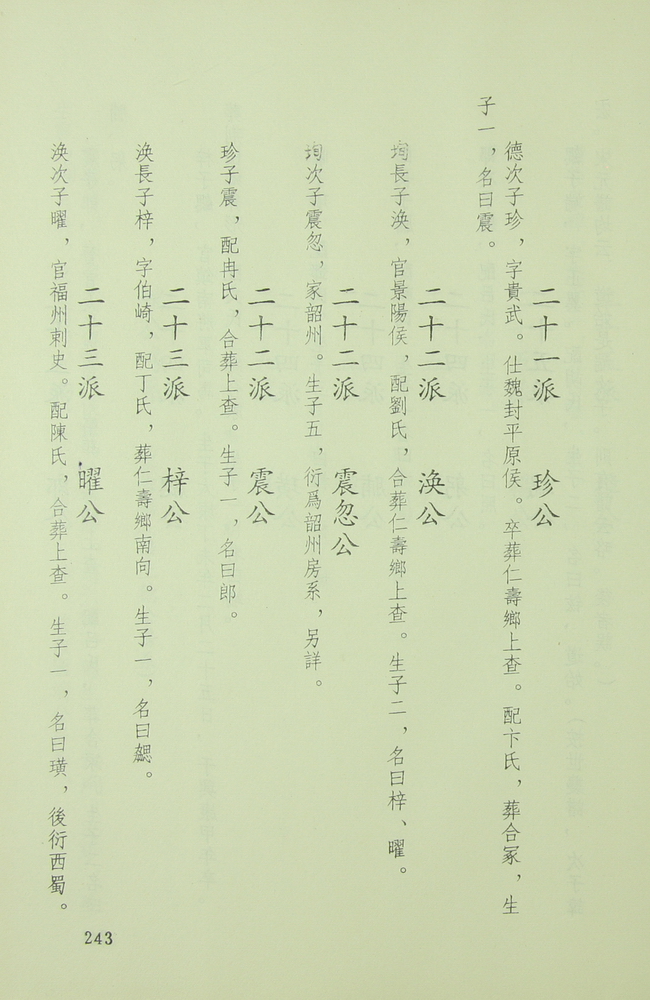 二十一派　珍公
德次子珍，字貴武。仕魏封平原侯。卒葬仁壽鄉上查。配卞氏，葬合冢，生
子一，名曰震。
二十二派　渙公
珣長子渙，官景陽侯，配劉氏，合葬仁壽鄉上查。生子二，名曰梓、曜。
二十二派　震忽公
珣次子震忽，家韶州。生子五，衍爲韶州房系，另詳。
二十二派　震公
珍子震，配冉氏，合葬上查。生子一，名曰郎。
二十三派　梓公
渙長子梓，字伯崎，配丁氏，葬仁壽鄉南向。生子一，名曰勰。
二十三派　曜公
渙次子曜，官福州刺史。配陳氏，合葬上查。生子一，名曰璜，後衍西蜀。
243